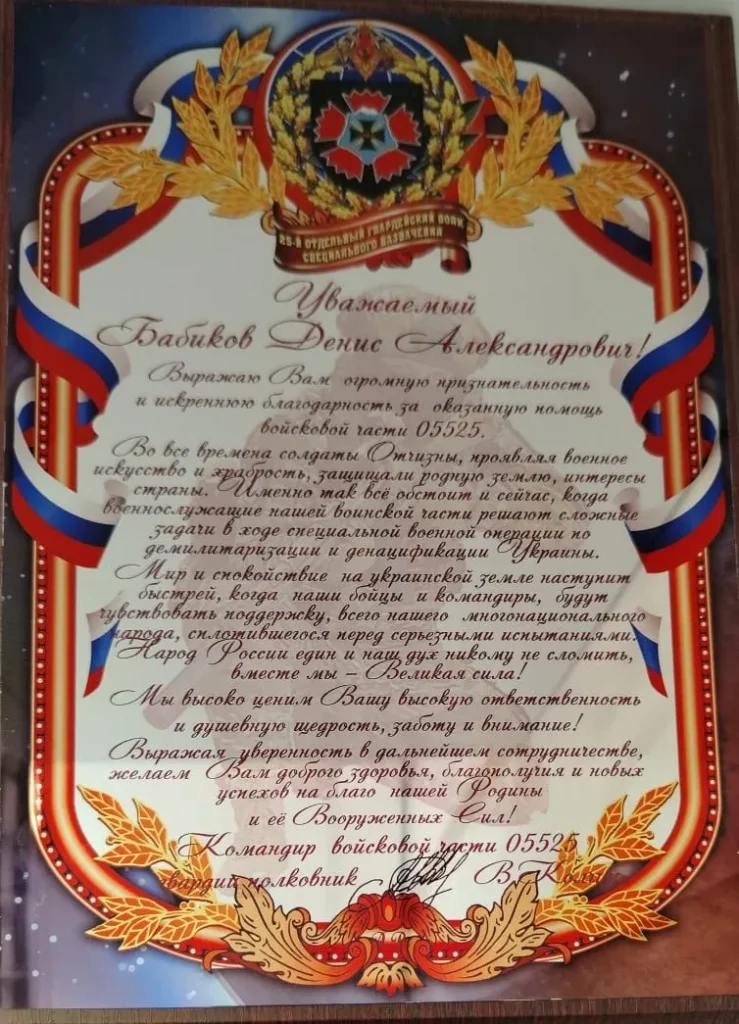 25-Й ОТДЕЛЬНЫЙ ГВАРДЕЙСКИЙ ПОЛК
СПЕЦИАЛЬНОГО НАЗНАЧЕНИЯ
Уважаемый
Бабиков Денис Александрович!
Выражаю Вам огромную признательность
и искреннюю благодарность за оказанную помощь
войсковой части 05525.
Во все времена солдаты Отчизны, проявляя военное
искусство и храбрость, защищали родную землю, интересы
страны. Именно так всё обстоит и сейчас, когда
военнослужащие нашей воинской части решают сложные
задачи в ходе специальной военной операции по
демилитаризации и денацификации Украины.
Мир и спокойствие на украинской земле наступит
быстрей, когда наши бойцы и командиры, будут
чувствовать поддержку, всего нашего многонационального
народа, сплотившегося перед серьезными испытаниями.
Народ России един и наш дух никому не сломить,
вместе мы – Великая сила!
Мы высоко ценим Вашу высокую ответственность
и душевную щедрость, заботу и внимание!
Выражая уверенность в дальнейшем сотрудничестве,
желаем Вам доброго здоровья, благополучия и новых
успехов на благо нашей Родины
и её Вооруженных Сил!
Командир войсковой части 05525
гвардии полковник В.